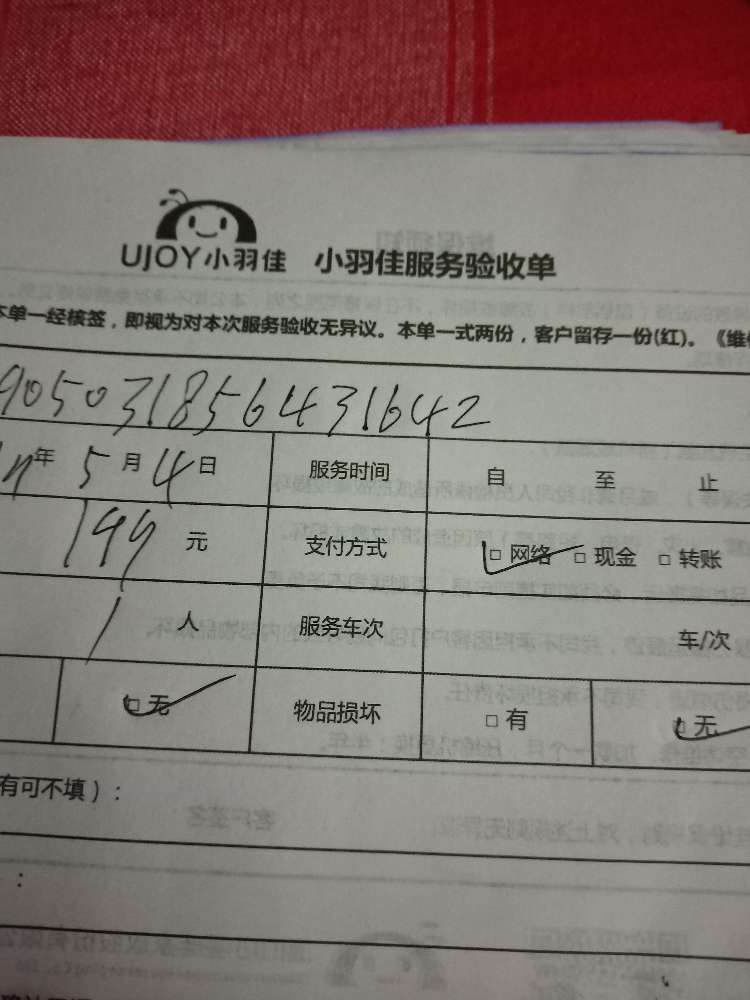 UJOY小羽佳 小羽佳服务验收单
本单一经核签，即视为对本次服务验收无异议。本单一式两份，客户留存一份(红)。《维
905031856431642
年 5 月 4 日 服务时间 自 至 止
199 元 支付方式 □ 网络 □ 现金 □ 转账
1 人 服务车次 车/次
□ 无 物品损坏 □ 有 □ 无
有可不填）：
：